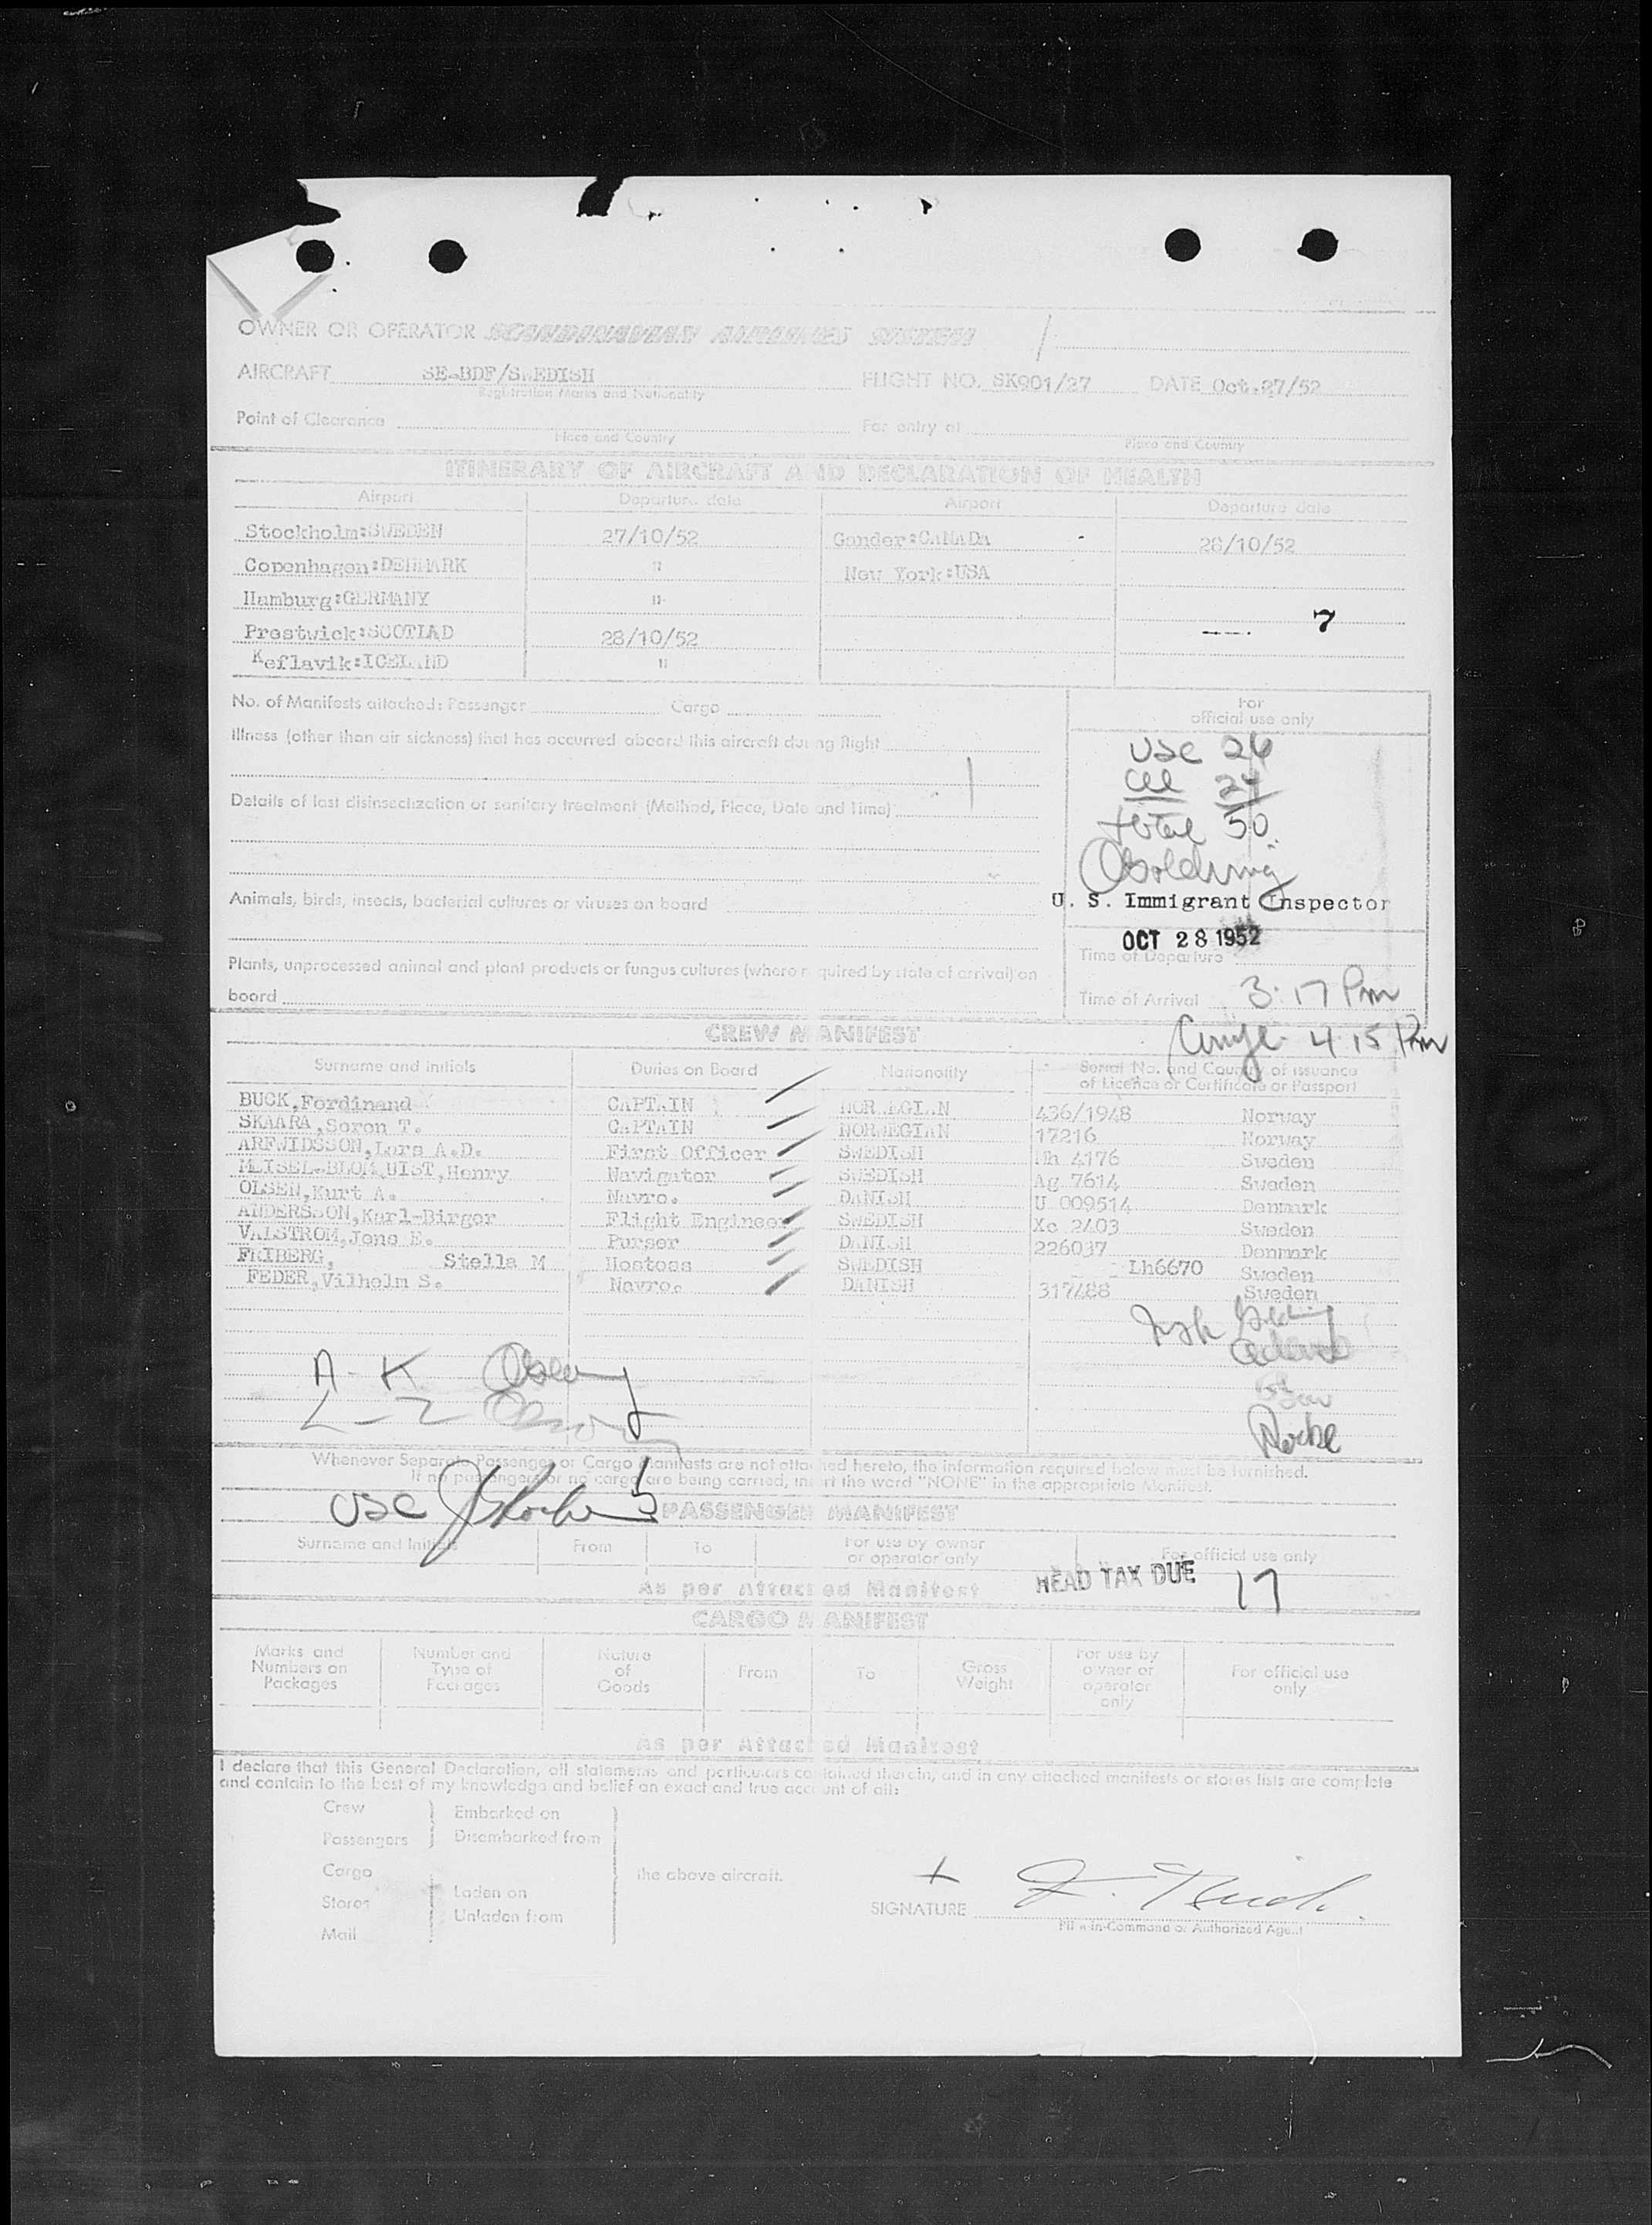 OWNER OR OPERATOR SCANDINAVIAN AIRLINES SYSTEM
AIRCRAFT SE-BDF/SWEDISH FLIGHT NO. SK901/27 DATE Oct.27/52
Registration Marks and Nationality
Point of Clearance For entry at
Place and Country Place and Country
ITINERARY OF AIRCRAFT AND DECLARATION OF HEALTH
Airport Departure date Airport Departure date
Stockholm:SWEDEN 27/10/52 Gander:CANADA 28/10/52
Copenhagen:DENMARK " New York:USA
Hamburg:GERMANY "
7
Prestwick:SCOTLAD 28/10/52
Keflavik:ICELAND "
No. of Manifests attached: Passenger Cargo
For
official use only
Illness (other than air sickness) that has occurred aboard this aircraft during flight
USC 26
24
Details of last disinsectization or sanitary treatment (Method, Place, Date and Time)
total 50
Animals, birds, insects, bacterial cultures or viruses on board
U. S. Immigrant Inspector
OCT 28 1952
Time of Departure
Plants, unprocessed animal and plant products or fungus cultures (where required by state of arrival) on
board
Time of Arrival 3:17 Pm
4 15 Pm
CREW MANIFEST
Surname and initials Duties on Board Nationality Serial No. and Country of issuance
of Licence or Certificate or Passport
BUCK,Ferdinand CAPTAIN NORWEGIAN 436/1948 Norway
SKAARA,Soren T. CAPTAIN NORWEGIAN 17216 Norway
ARFWIDSSON,Lars A.D. First Officer SWEDISH Mh 4176 Sweden
MEISEL-BLOMQUIST,Henry Navigator SWEDISH Ag 7614 Sweden
OLSEN,Kurt A. Navro. DANISH U 009514 Denmark
ANDERSSON,Karl-Birger Flight Engineer SWEDISH Xc 2403 Sweden
VALSTROM,Jens E. Purser DANISH 226037 Denmark
FRIBERG, Stella M Hostess SWEDISH Lh6670 Sweden
FEDER,Vilhelm S. Navro. DANISH 317488 Sweden
A - K
L - Z
Roche
Whenever Separate Passenger or Cargo Manifests are not attached hereto, the information required below must be furnished.
If no passengers or no cargo are being carried, insert the word "NONE" in the appropriate Manifest.
USC
PASSENGER MANIFEST
Surname and Initials From To For use by owner
or operator only For official use only
As per Attached Manifest HEAD TAX DUE 17
CARGO MANIFEST
Marks and
Numbers on
Packages Number and
Type of
Packages Nature
of
Goods From To Gross
Weight For use by
owner or
operator
only For official use
only
As per Attached Manifest
I declare that this General Declaration, all statements and particulars contained therein, and in any attached manifests or stores lists are complete
and contain to the best of my knowledge and belief an exact and true account of all:
Crew Embarked on
Passengers Disembarked from
Cargo the above aircraft.
Stores Laden on
Unladen from
Mail
SIGNATURE
Pilot-in-Command or Authorized Agent